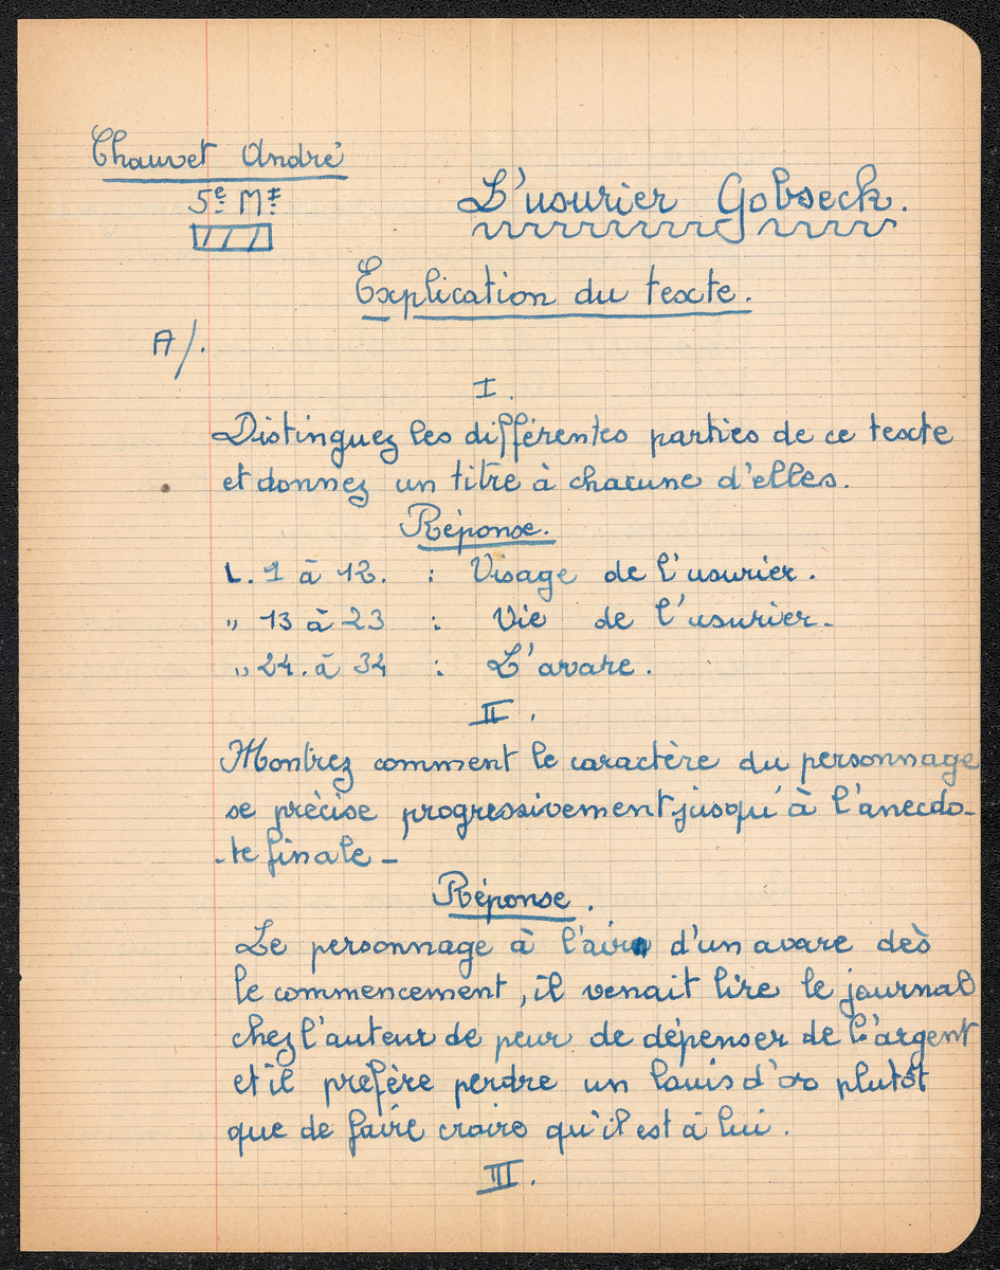 Chauvet André
5e Mt
L'usurier Gobseck.
Explication du texte.
A/.
I.
Distinguez les différentes parties de ce texte
et donnez un titre à chacune d'elles.
Réponse.
L. 1 à 12. : Visage de l'usurier.
" 13 à 23 : Vie de l'usurier.
" 24. à 34 : L'avare.
II.
Montrez comment le caractère du personnage
se précise progressivement jusqu'à l'anecdo-
-te finale -
Réponse.
Le personnage à l'air d'un avare dès
le commencement, il venait lire le journal
chez l'auteur de peur de dépenser de l'argent
et il préfère perdre un louis d'or plutôt
que de faire croire qu'il est à lui.
III.